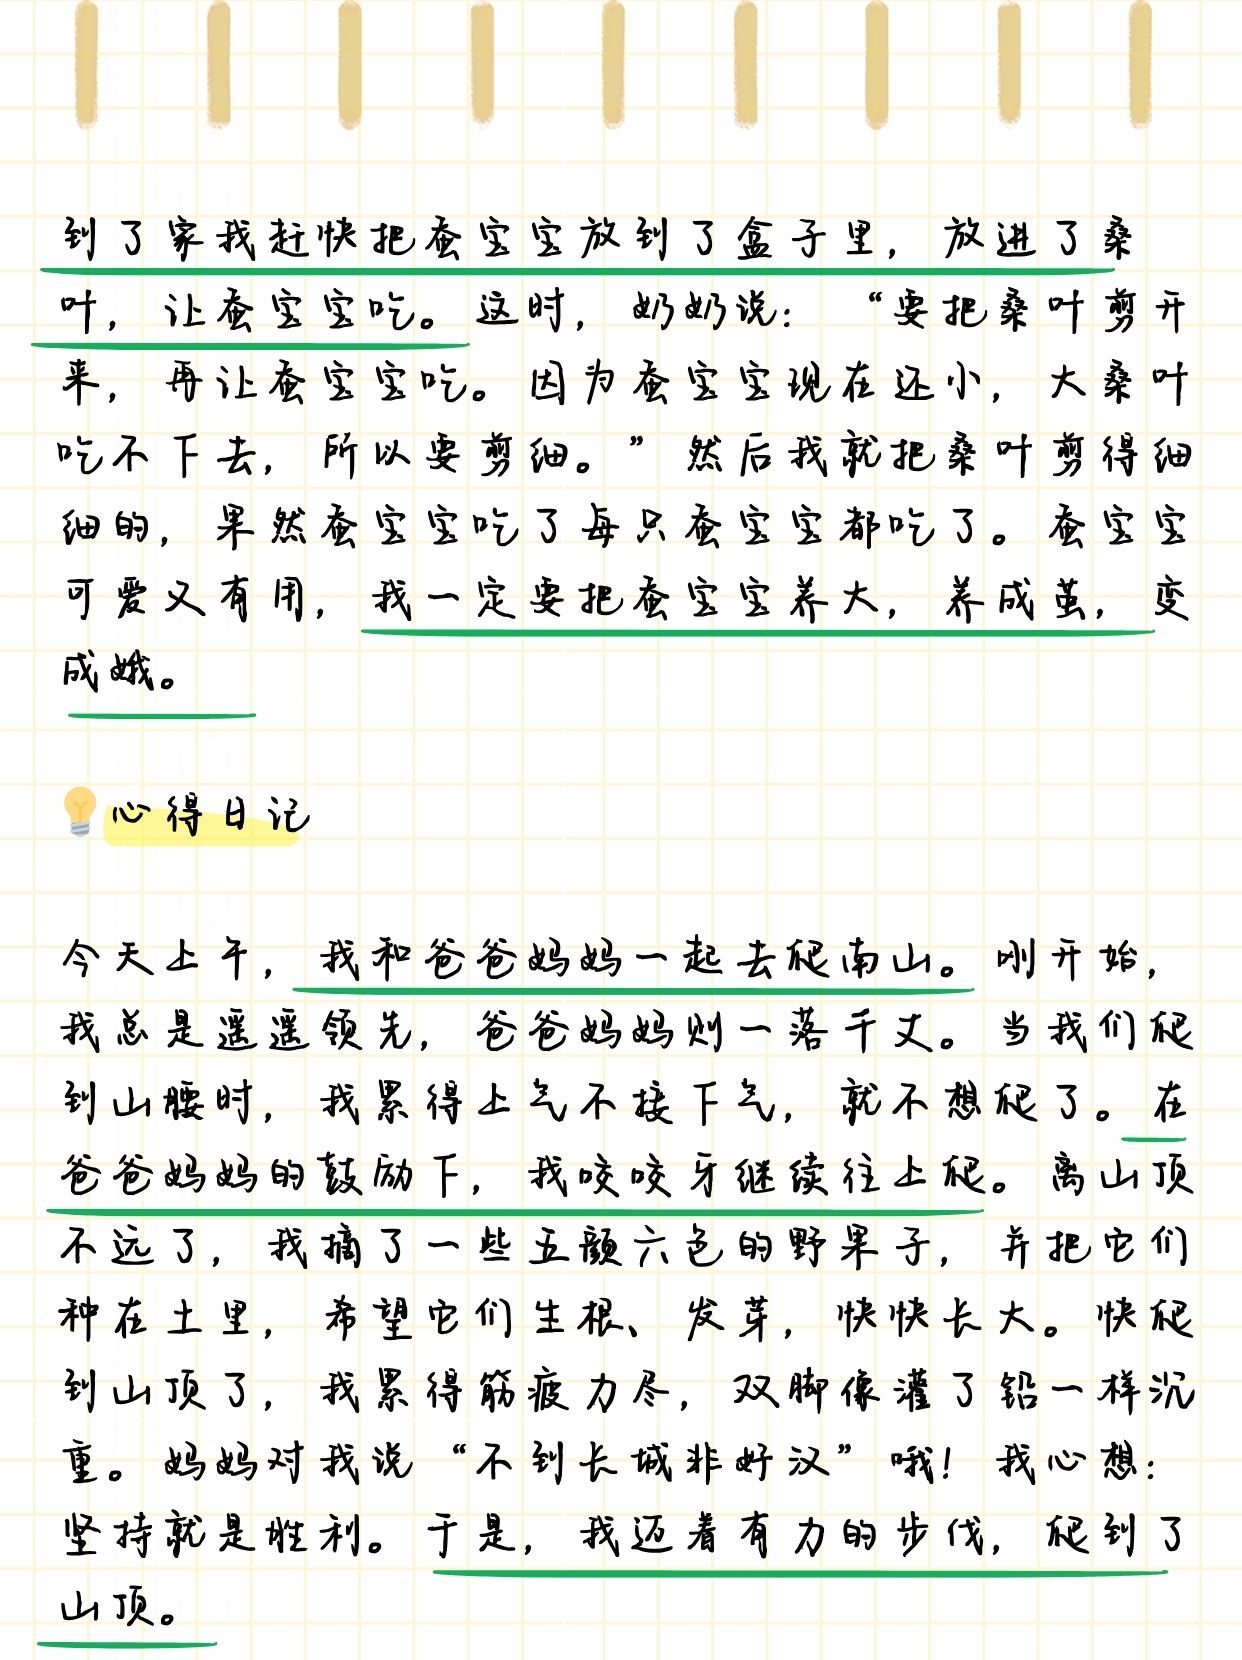 到了家我赶快把蚕宝宝放到了盒子里，放进了桑
叶，让蚕宝宝吃。这时，奶奶说：“要把桑叶剪开
来，再让蚕宝宝吃。因为蚕宝宝现在还小，大桑叶
吃不下去，所以要剪细。”然后我就把桑叶剪得细
细的，果然蚕宝宝吃了每只蚕宝宝都吃了。蚕宝宝
可爱又有用，我一定要把蚕宝宝养大，养成茧，变
成娥。
心得日记
今天上午，我和爸爸妈妈一起去爬南山。刚开始，
我总是遥遥领先，爸爸妈妈则一落千丈。当我们爬
到山腰时，我累得上气不接下气，就不想爬了。在
爸爸妈妈的鼓励下，我咬咬牙继续往上爬。离山顶
不远了，我摘了一些五颜六色的野果子，并把它们
种在土里，希望它们生根、发芽，快快长大。快爬
到山顶了，我累得筋疲力尽，双脚像灌了铅一样沉
重。妈妈对我说“不到长城非好汉”哦！我心想：
坚持就是胜利。于是，我迈着有力的步伐，爬到了
山顶。